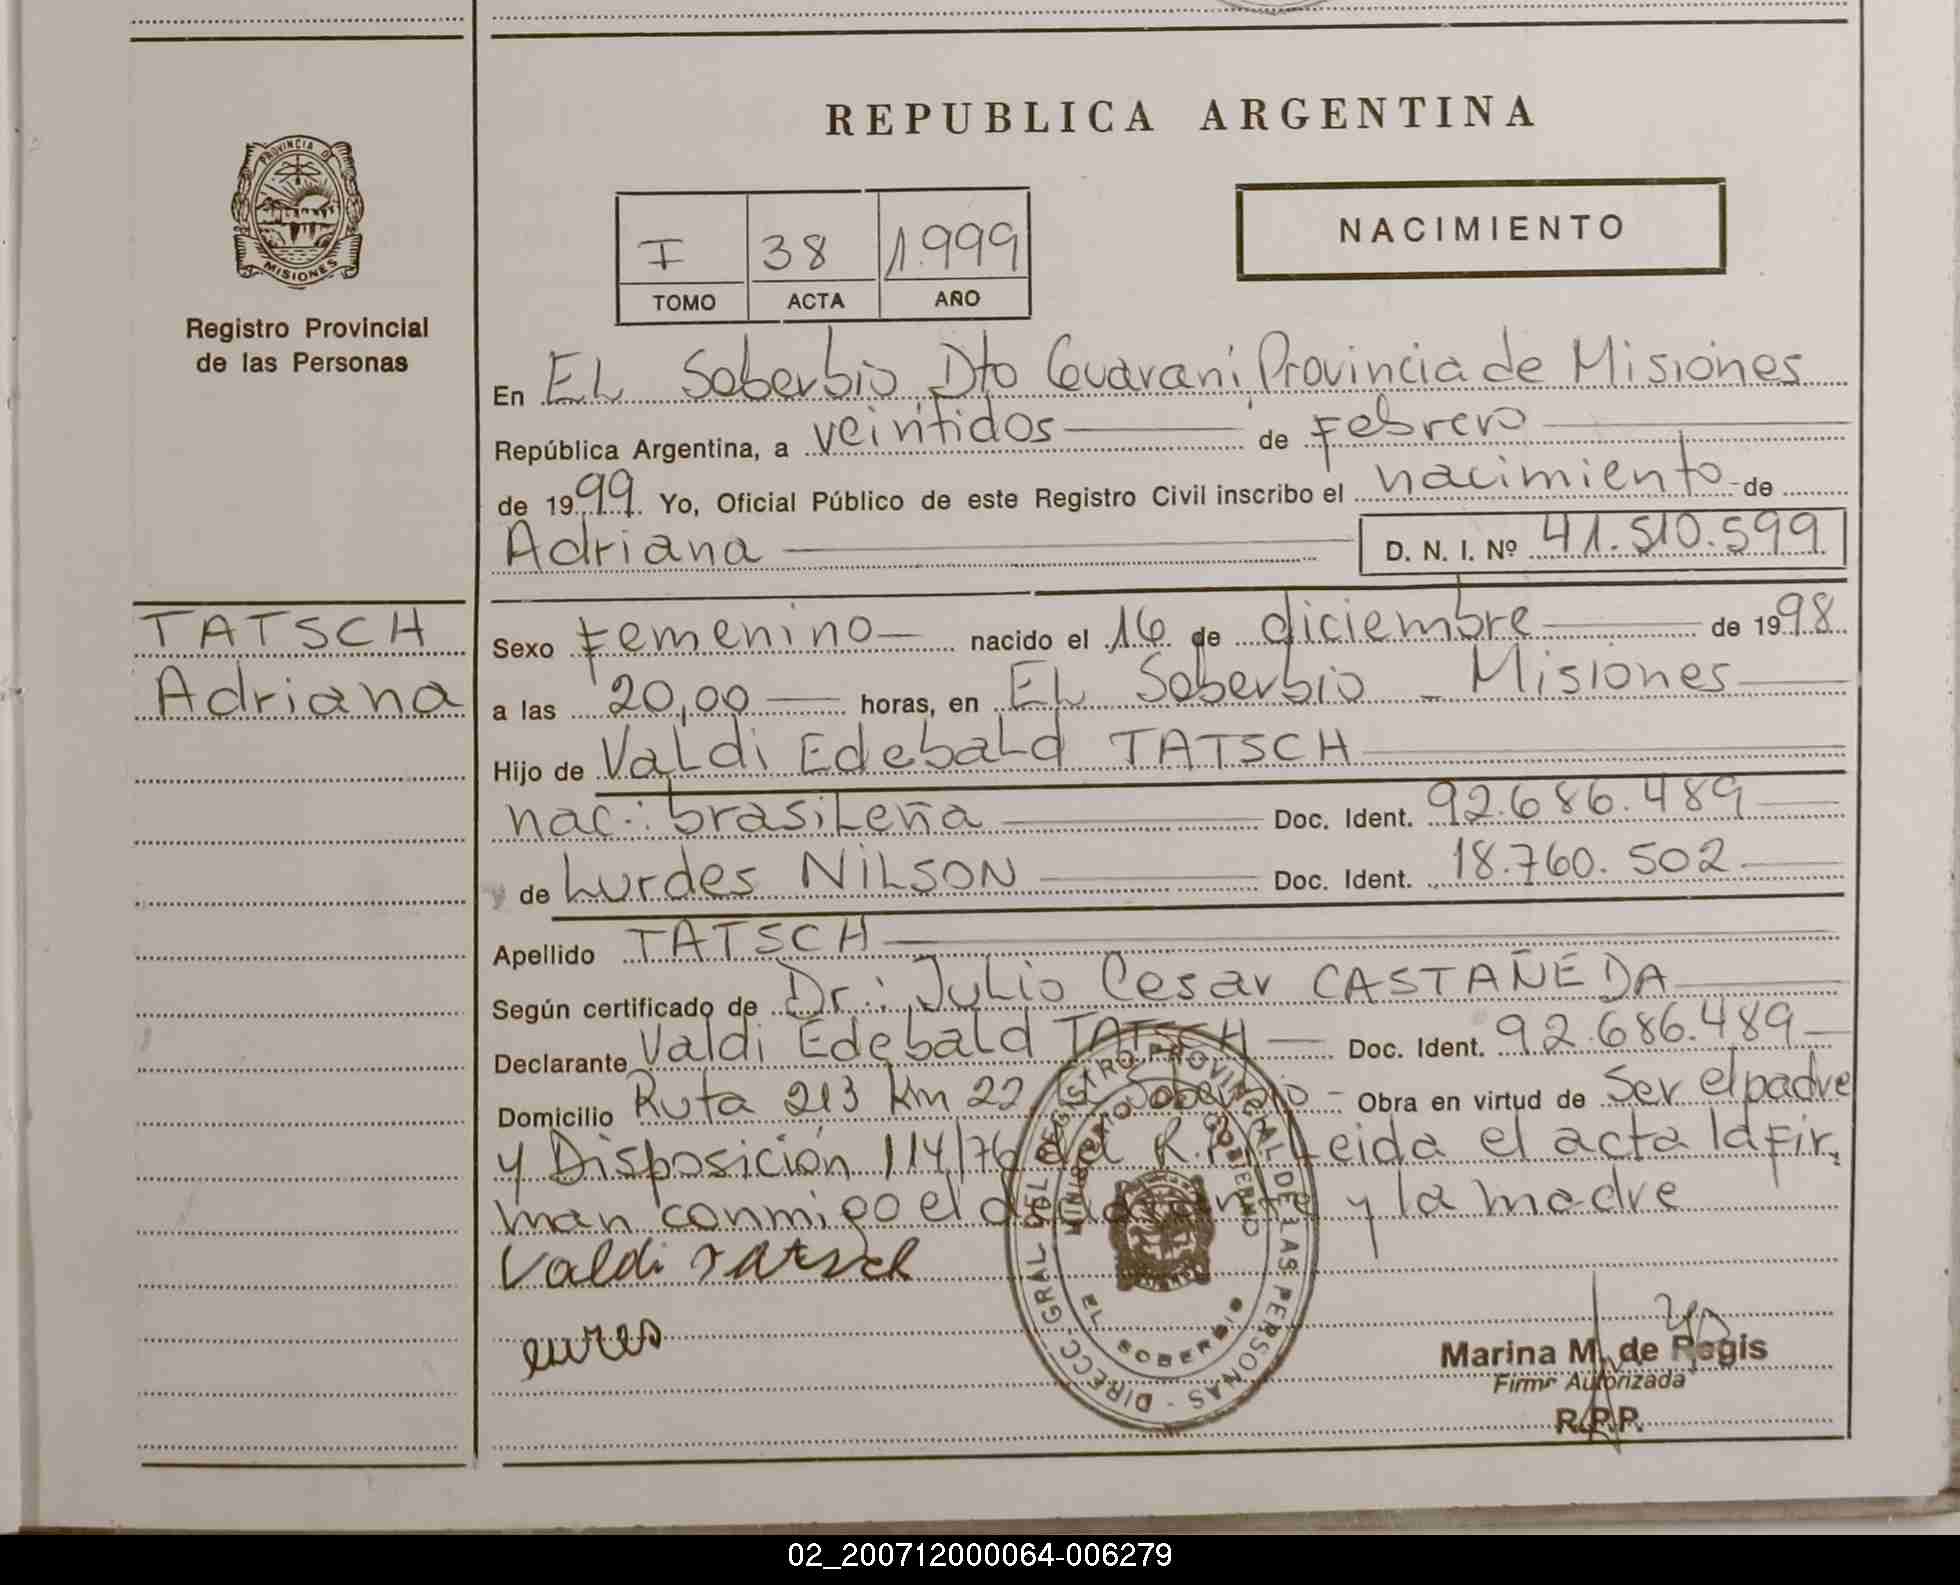 REPUBLICA ARGENTINA
PROVINCIA D
MISIONES
Registro Provincial
de las Personas
I 38 1.999
TOMO ACTA AÑO
NACIMIENTO
En EL Soberbio Dto Guaraní Provincia de Misiones
República Argentina, a veintidos de Febrero
de 1999. Yo, Oficial Público de este Registro Civil inscribo el nacimiento de
Adriana D. N. I. Nº 41.510.599
TATSCH
Adriana
Sexo Femenino nacido el 16 de diciembre de 1998
a las 20,00 horas, en EL Soberbio - Misiones
Hijo de Valdi Edebald TATSCH
nac.: brasileña Doc. Ident. 92.686.489
y de Lurdes NiLSON Doc. Ident. 18.760.502
Apellido TATSCH
Según certificado de Dr.: Julio Cesar CASTAÑEDA
Declarante Valdi Edebald TATSCH Doc. Ident. 92.686.489
Domicilio Ruta 213 Km 22 El Soberbio - Obra en virtud de Ser el padre
y Disposición 114/76 del R.P.P. Leida el acta la fir.
man conmigo el declarante y la madre
Valdi Tatsch
DIRECC. GRAL DEL REGISTRO PROVINCIAL DE LAS PERSONAS -
MINISTERIO DE GOBIERNO
EL SOBERBIO
Marina M. de Regis
Firma Autorizada
R.P.P.
02_200712000064-006279